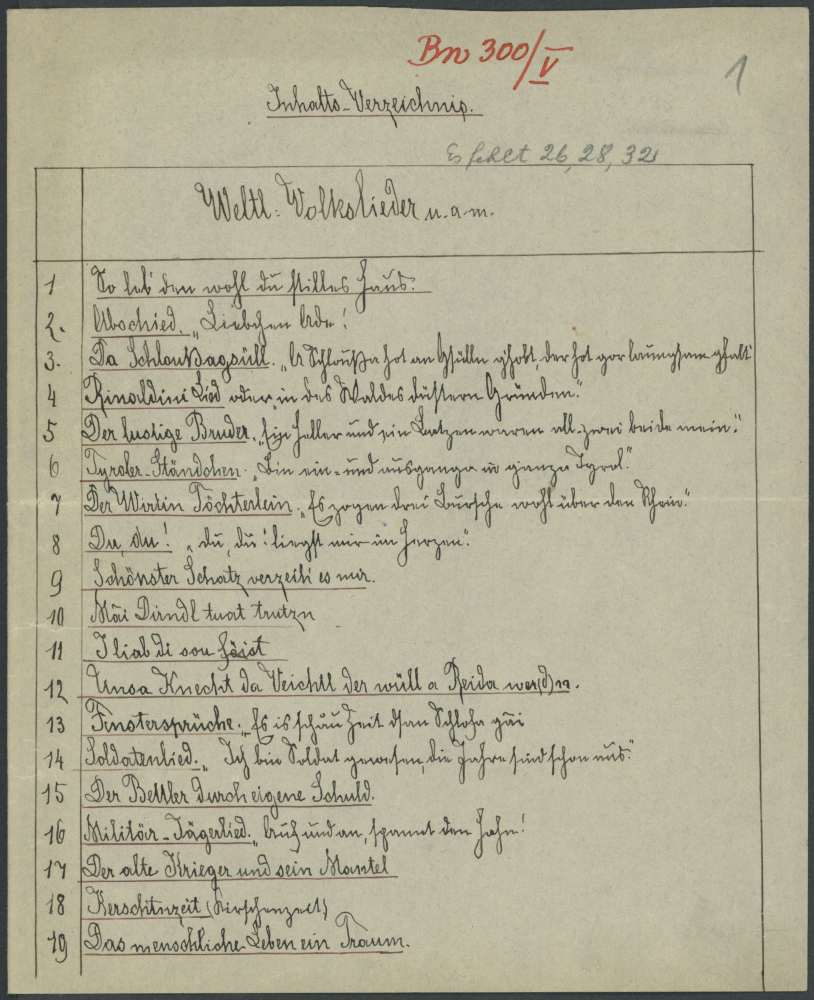 Bn 300/V
1
Inhalts-Verzeichnis.
Es fehlt 26, 28, 32
Weltl: Volkslieder u. a. m.
1 So leb' den wohl du stilles Haus.
2. Abschied. "Liebchen Ade!
3. Da Schloußagsüll. "A Schloußa hot an Gsülln ghobt, der hot gor laungsam ghalt"
4 Rinaldini Lied oder "in des Waldes düstern Gründen."
5 Der lustige Bruder. "Ein Heller und ein Batzen waren all-zwei beide mein."
6 Tyroler-Ständchen. "Bin ein- und ausganga in ganzn Tyrol."
7 Der Wirtin Töchterlein. "Es zogen drei Bursche wohl über den Rhein."
8 Du, du! "du, du! liegst mir im Herzen."
9 Schönster Schatz verzeih' es mir.
10 Mäi Dirndl tuat trutzn
11 I liab di sou
12 Unsa Knecht da Veichtl der wüll a Reida wer(d)n.
13 Fenstersprüche. "Es is schäu Zeit dsan Schlofa gäi
14 Soldatenlied. "Ich bin Soldat gewesen, die Jahre sind schon aus."
15 Der Bettler durch eigene Schuld.
16 Militär-Jägerlied. "Auf und an, spannt den Hahn!
17 Der alte Krieger und sein Mantel
18 Kerschtnzeit (Kirschenzeit)
19 Das menschliche Leben ein Traum.